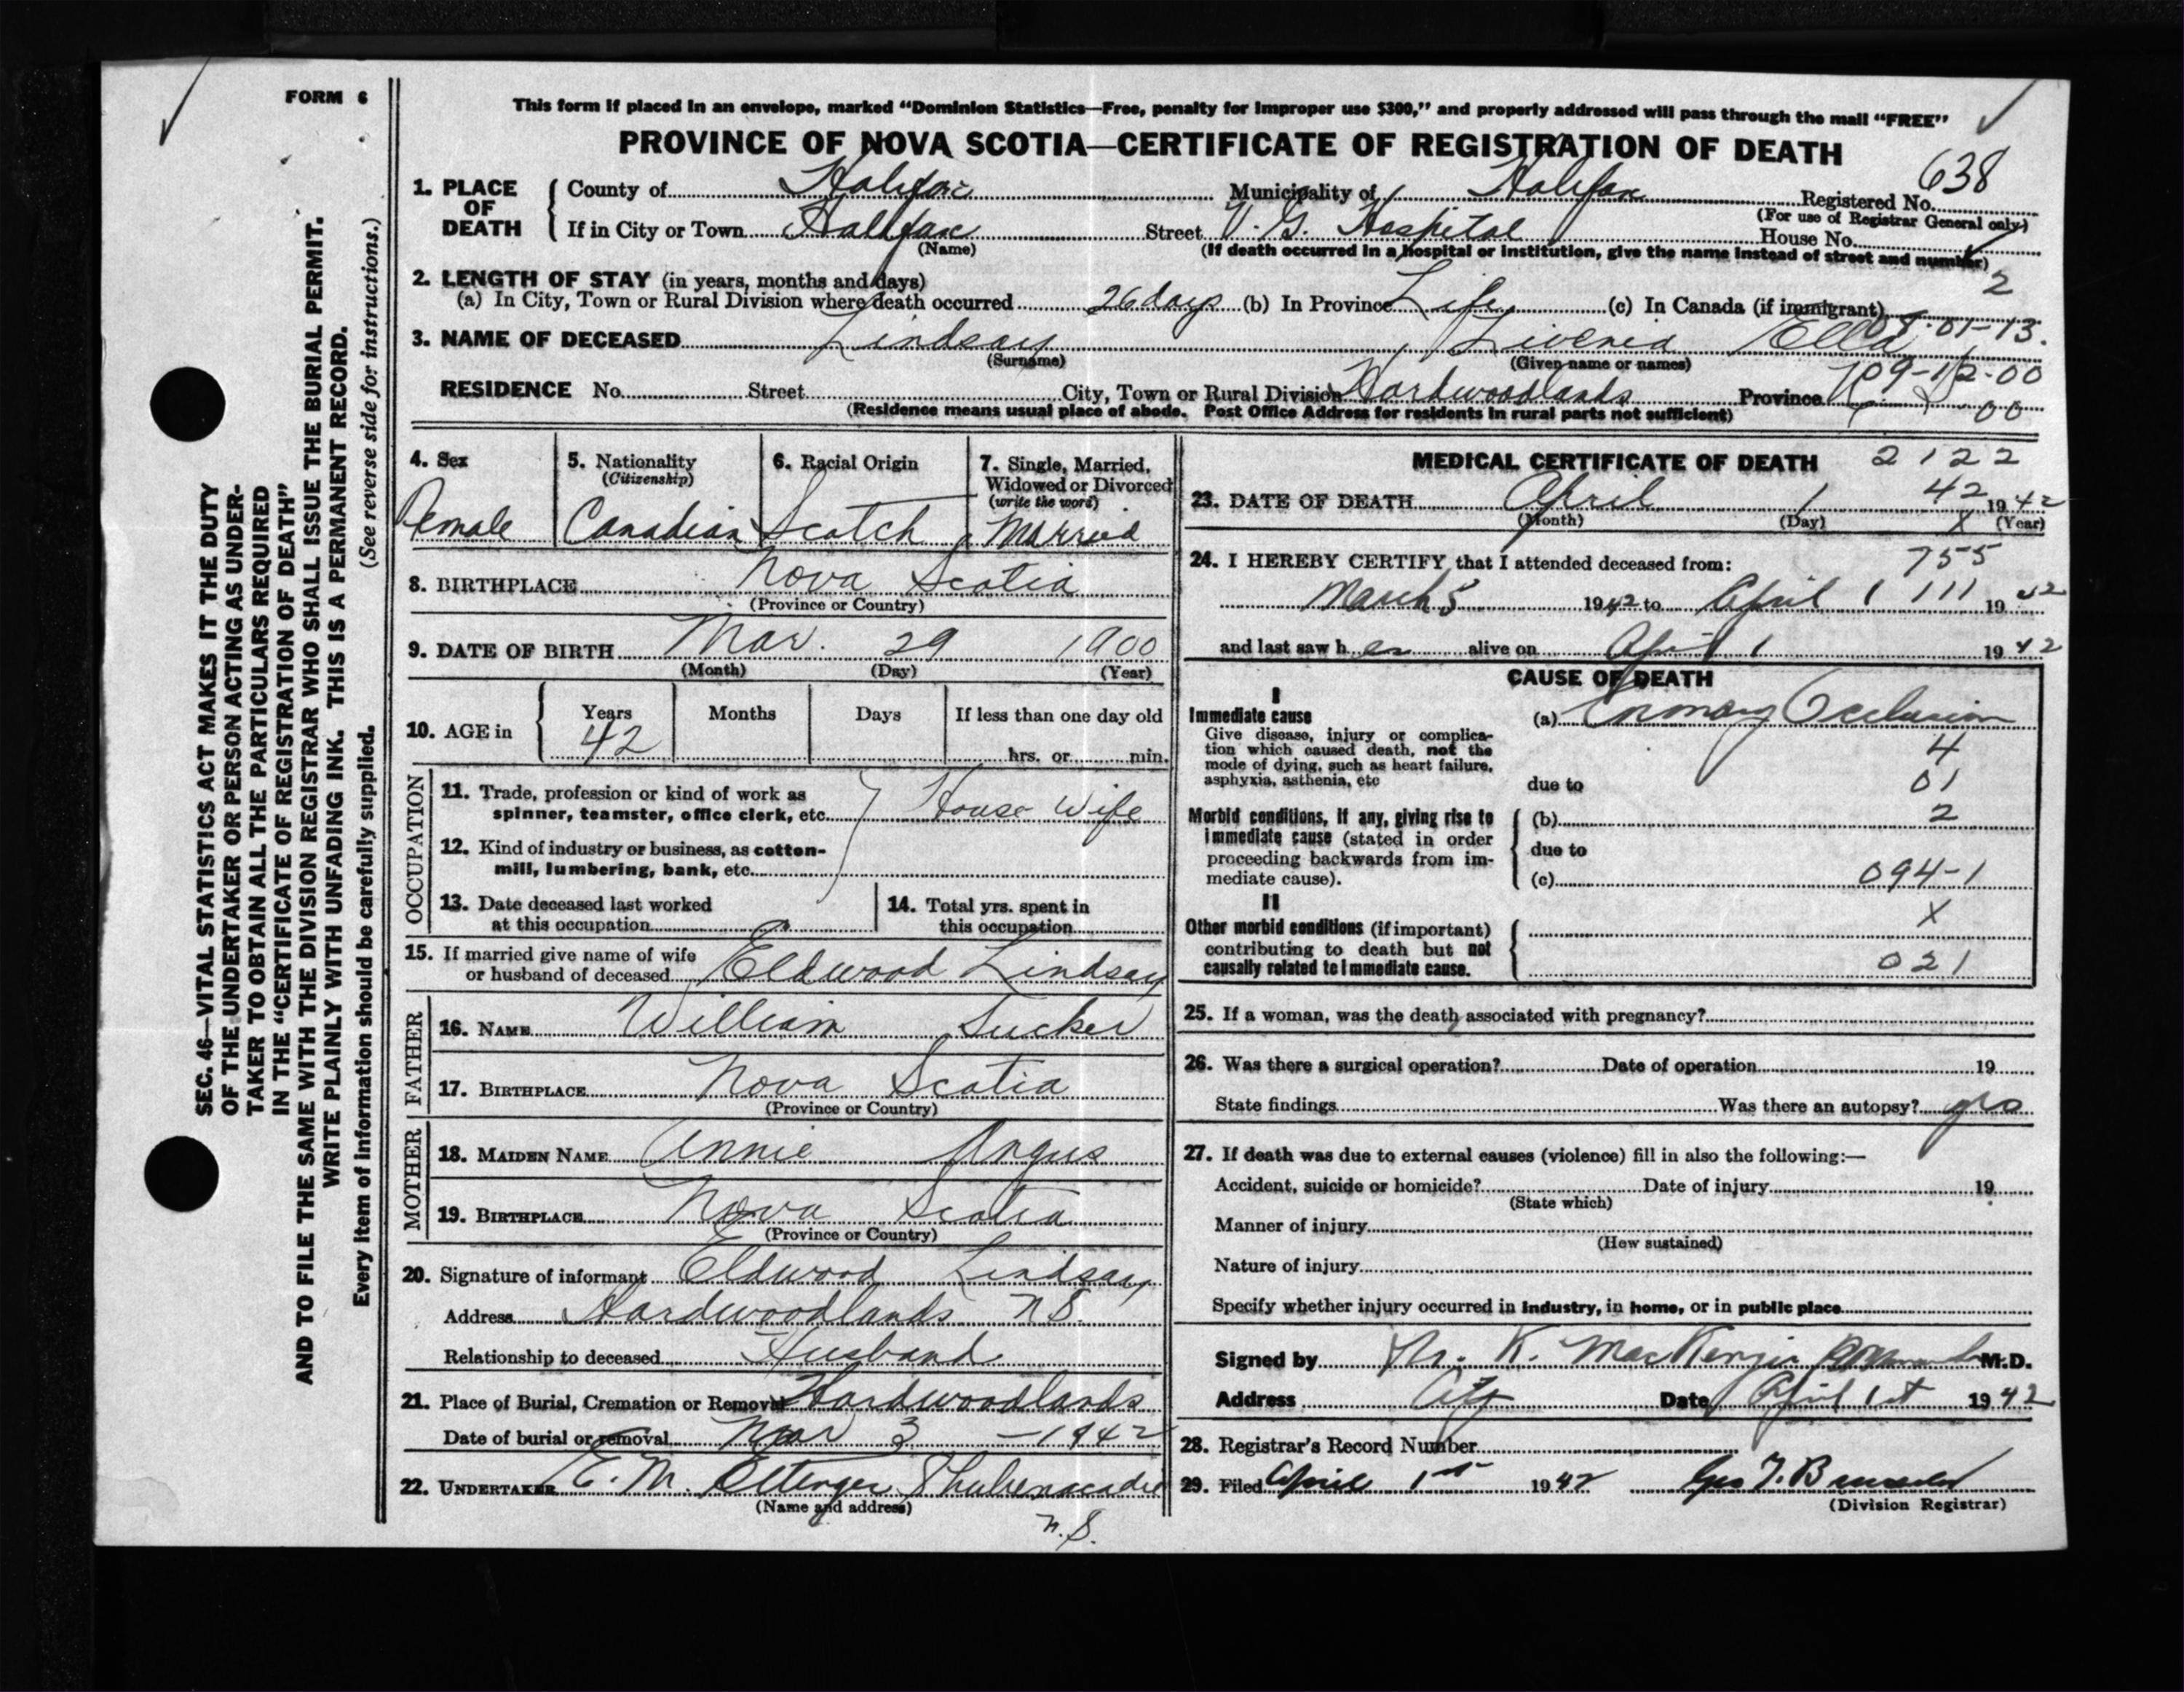 FORM 6
This form if placed in an envelope, marked "Dominion Statistics—Free, penalty for improper use $300," and properly addressed will pass through the mail "FREE"
PROVINCE OF NOVA SCOTIA—CERTIFICATE OF REGISTRATION OF DEATH
638
1. PLACE OF DEATH { County of Halifax Municipality of Halifax Registered No.
(For use of Registrar General only)
If in City or Town Halifax Street V. G. Hospital House No.
(Name) (If death occurred in a hospital or institution, give the name instead of street and number)
2. LENGTH OF STAY (in years, months and days) 2
(a) In City, Town or Rural Division where death occurred 26 days (b) In Province Life (c) In Canada (if immigrant)
3. NAME OF DECEASED Lindsay Livenia Ella 01-13.
(Surname) (Given name or names)
09-12-00
RESIDENCE No. Street City, Town or Rural Division Hardwoodlands Province
(Residence means usual place of abode. Post Office Address for residents in rural parts not sufficient) 00
4. Sex 5. Nationality 6. Racial Origin 7. Single, Married,
(Citizenship) Widowed or Divorced
(write the word)
Female Canadian Scotch Married
8. BIRTHPLACE Nova Scotia
(Province or Country)
9. DATE OF BIRTH Mar. 29 1900
(Month) (Day) (Year)
10. AGE in { Years Months Days If less than one day old
42 hrs. or min.
OCCUPATION
11. Trade, profession or kind of work as
spinner, teamster, office clerk, etc. House Wife
12. Kind of industry or business, as cotton-
mill, lumbering, bank, etc.
13. Date deceased last worked 14. Total yrs. spent in
at this occupation this occupation
15. If married give name of wife
or husband of deceased Eldwood Lindsay
FATHER
16. NAME William Tucker
17. BIRTHPLACE Nova Scotia
(Province or Country)
MOTHER
18. MAIDEN NAME Annie Angus
19. BIRTHPLACE Nova Scotia
(Province or Country)
20. Signature of informant Eldwood Lindsay
Address Hardwoodlands N.S.
Relationship to deceased Husband
21. Place of Burial, Cremation or Removal Hardwoodlands
Date of burial or removal Mar 3 —1942
22. UNDERTAKER E. M. Ettenger Shubenacadie
(Name and address)
N.S.
MEDICAL CERTIFICATE OF DEATH 2122
42
23. DATE OF DEATH April 1 1942
(Month) (Day) X (Year)
24. I HEREBY CERTIFY that I attended deceased from: 755
March 5 1942 to April 1 111 1942
and last saw her alive on April 1 1942
CAUSE OF DEATH
I
Immediate cause (a) Coronary Occlusion
Give disease, injury or complica-
tion which caused death, not the 4
mode of dying, such as heart failure,
asphyxia, asthenia, etc due to 01
Morbid conditions, if any, giving rise to (b) 2
immediate cause (stated in order due to
proceeding backwards from im-
mediate cause). (c) 094-1
II
X
Other morbid conditions (if important)
contributing to death but not
causally related to immediate cause. 021
25. If a woman, was the death associated with pregnancy?
26. Was there a surgical operation? Date of operation 19
State findings Was there an autopsy?
27. If death was due to external causes (violence) fill in also the following:—
Accident, suicide or homicide? Date of injury 19
(State which)
Manner of injury
(How sustained)
Nature of injury
Specify whether injury occurred in industry, in home, or in public place
Signed by K. MacKenzie M.D.
Address City Date April 1st 1942
28. Registrar's Record Number
29. Filed April 1st 1942
(Division Registrar)
SEC. 46—VITAL STATISTICS ACT MAKES IT THE DUTY
OF THE UNDERTAKER OR PERSON ACTING AS UNDER-
TAKER TO OBTAIN ALL THE PARTICULARS REQUIRED
IN THE "CERTIFICATE OF REGISTRATION OF DEATH"
AND TO FILE THE SAME WITH THE DIVISION REGISTRAR WHO SHALL ISSUE THE BURIAL PERMIT.
WRITE PLAINLY WITH UNFADING INK. THIS IS A PERMANENT RECORD.
Every item of information should be carefully supplied. (See reverse side for instructions.)